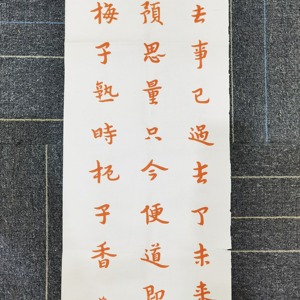 去事已過去了未來
預思量只今便道即
梅子熟時栀子香